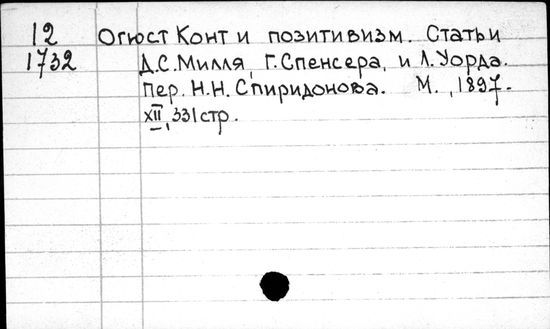 12 Огюст Конт и позитивизм. Статьи
1732 Д.С.Милля, Г.Спенсера, и Л.Уорда.
Пер. Н.Н.Спиридонова. М., 1897.
XII, 331 стр.